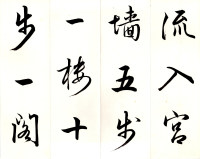 流入宫
墙五步
一楼十
步一阁